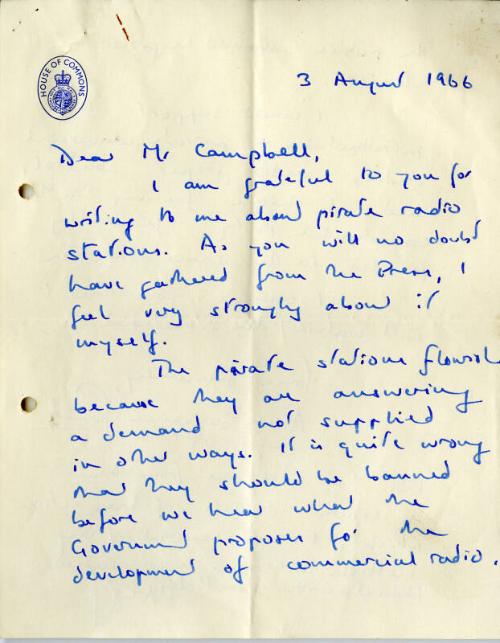 HOUSE OF COMMONS
3 August 1966
Dear Mr Campbell,
I am grateful to you for
writing to me about pirate radio
stations. As you will no doubt
have gathered from the Press, I
feel very strongly about it
myself.
The pirate stations flourish
because they are answering
a demand not supplied
in other ways. It is quite wrong
that they should be banned
before we hear what the
Government proposes for the
development of commercial radio.